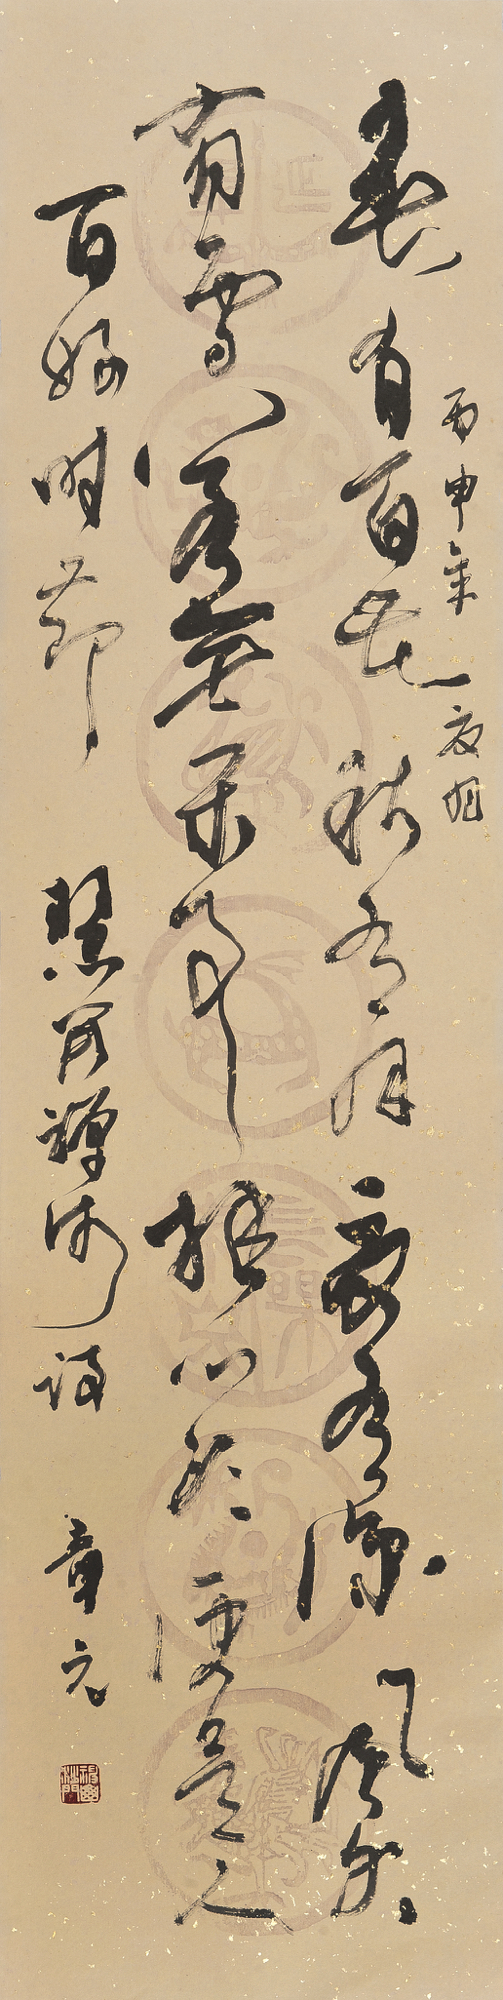 丙申年
春有百花秋有月夏有涼風冬
有雪若無閒事挂心頭便是人
间好时節
慧開禪師詩
章元